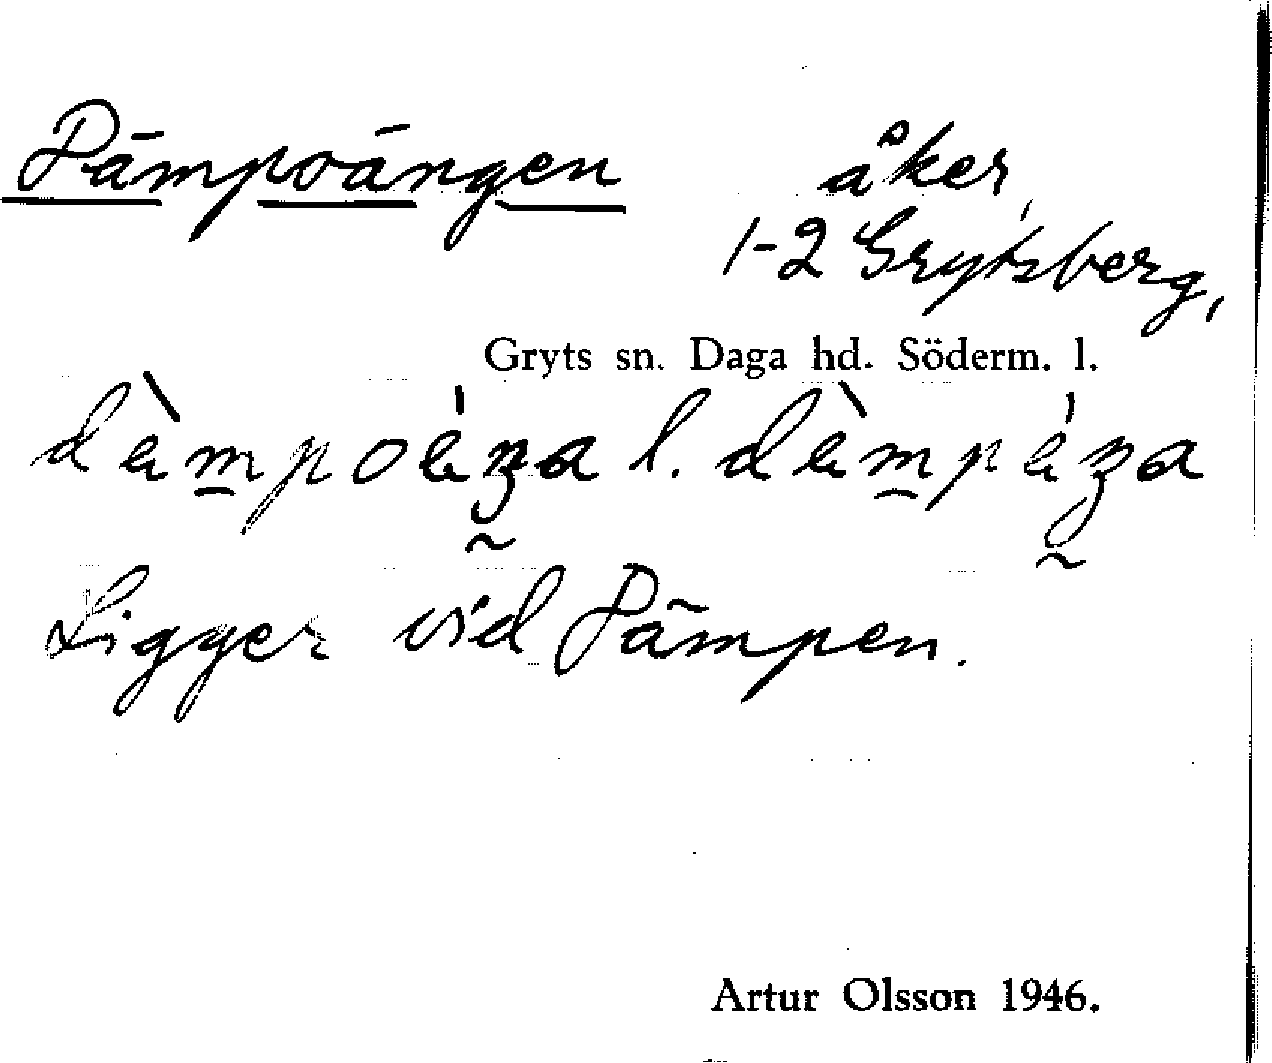 Dämpoängen åker,
1-2 Grytsberg,
Gryts sn. Daga hd. Söderm. l.
dä̀m̱poä́ŋa l. dä̀m̱pä́ŋa
Ligger vid Dämpen.
Artur Olsson 1946.